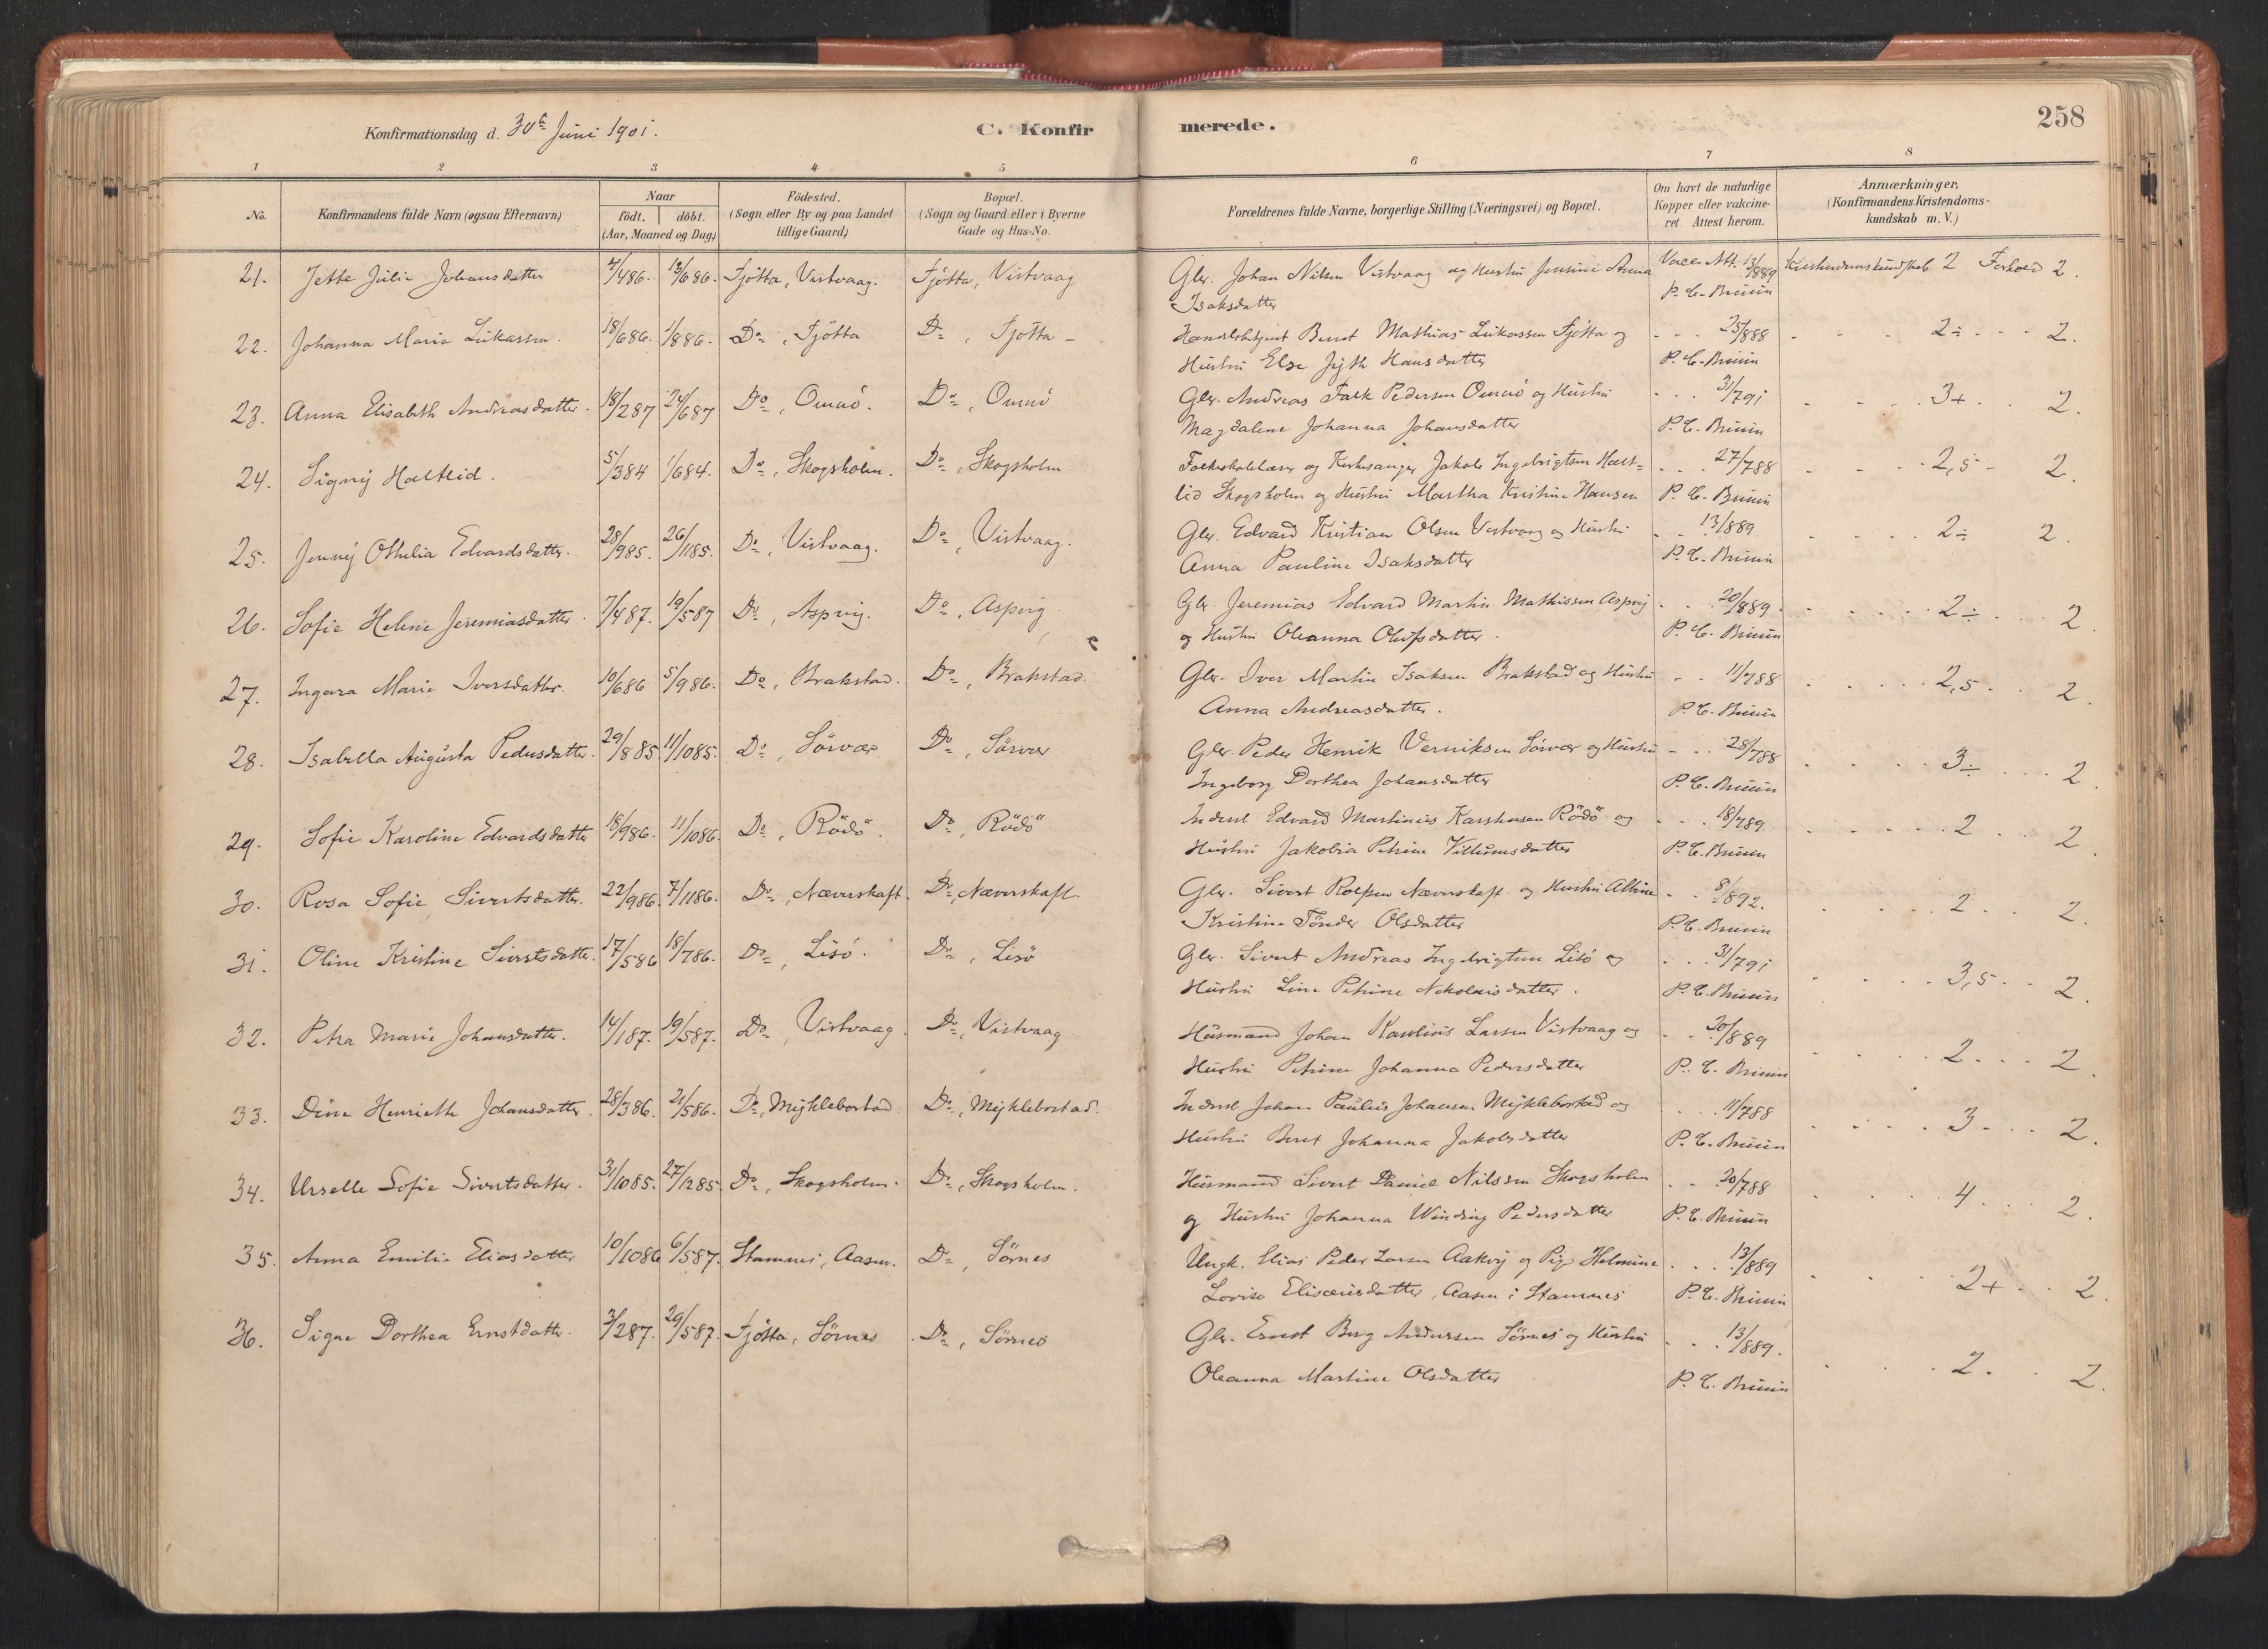 Konfirmationsdag d. 30te Juni 1901.
C. Konfirmerede.
258
1 2 3 4 5 6 7 8
No. Konfirmandens fulde Navn (ogsaa Efternavn) Naar födt. döbt. (Aar, Maaned og Dag) Födested. (Sogn eller By og paa Landet tillige Gaard) Bopæl. (Sogn og Gaard eller i Byerne Gade og Hus-No. Forældrenes fulde Navne, borgerlige Stilling (Næringsvei) og Bopæl. Om havt de naturlige Kopper eller vakcineret. Attest herom. Anmærkninger. (Konfirmandens Kristendomskundskab m. V.)
21. Jette Julie Johansdatter 4/486. 13/686. Tjötta, Vistvaag. Tjötta, Vistvaag Gbr. Johan Nilsen Vistvaag og Hustru Jensine Anna Vacc. Att. 13/889 Kristendomskundskab 2 Forhold 2.
Isaksdatter P. C. Bruun
22. Johanna Marie Lukassen. 18/686. 1/886. Do, Tjötta Do, Tjötta - Handelsbetjent Bernt Mathias Lukassen Tjötta og - - - 25/888 - - - - 2÷ - - - 2.
Hustru Else Jytte Hansdatter P. C. Bruun
23. Anna Elisabeth Andreasdatter. 18/287 24/687 Do, Omnö. Do, Omnö Gbr. Andreas Falk Pedersen Omnö og Hustru - - - 31/791 - - - - 3+ - - 2.
Magdalene Johanna Johansdatter P. C. Bruun
24. Signy Haltlid. 5/384 1/684. Do, Skogsholm. Do, Skogsholm Folkeskolelærer og Kirkesanger Jakob Ingebrigtsen Halt= - - - 27/788 - - - - 2,5 - 2.
lid Skogsholm og Hustru Martha Kristine Hansen P. C. Bruun
25. Jenny Othelia Edvardsdatter. 28/985. 26/1185. Do, Vistvaag. Do, Vistvaag. Gbr. Edvard Kristian Olsen Vistvaag og Hustru - - 13/889 - - - - 2÷ 2.
Anna Pauline Isaksdatter P. C. Bruun
26. Sofie Helene Jeremiasdatter. 7/487. 19/587 Do, Aspvig. Do, Aspvig Gbr. Jeremias Edvard Martin Mathissen Aspvig - - 20/889. - - - - 2÷ - - 2.
og Hustru Oleanna Olufsdatter. P. C. Bruun
27. Ingara Marie Iversdatter. 10/686 5/986. Do, Brakstad. Do, Brakstad. Gbr. Iver Martin Isaksen Brakstad og Hustru - - 11/788 - - - - 2,5 - - 2.
Anna Andreasdatter. P. C. Bruun
28. Isabella Augusta Pedersdatter. 29/885. 11/1085. Do, Sörvær Do, Sörvær Gbr. Peder Henrik Verniksen Sörvær og Hustru - - - 28/788 - - - - 3÷ - - - 2
Ingeborg Dorthea Johansdatter P. C. Bruun
29. Sofie Karoline Edvardsdatter 18/986. 11/1086. Do, Rödö. Do, Rödö Inderst Edvard Martinus Karstensen Rödö og - - - 18/789 - - - - 2 - - 2.
Hustru Jakobia Petrine Villumsdatter P. C. Bruun
30. Rosa Sofie Sivertsdatter. 22/986. 7/1186. Do, Næverskaft. Do, Næverskaft. Gbr. Sivert Rolfsen Næverskaft og Hustru Albine - - 8/892. - - - - 2 - - 2.
Kristine Tönder Olsdatter P. C. Bruun
31. Oline Kristine Sivertsdatter. 17/586 18/786. Do, Lisö. Do, Lisö Gbr. Sivert Andreas Ingebrigtsen Lisö og - - - 31/791 - - - - 3,5 - - 2.
Hustru Line Petrine Nekolaisdatter. P. C. Bruun
32. Petra Marie Johansdatter. 14/187. 19/587. Do, Vistvaag. Do, Vistvaag Husmand Johan Larsen Vistvaag og - - 20/889 - - - - 2 - - - 2.
Hustru Petrine Johanna Pedersdatter P. C. Bruun
33. Dine Henriette Johansdatter. 28/386. 21/586. Do, Myklebostad Do, Myklebostad. Inderst Johan Paulus Johansen Myklebostad og - - - 11/788 - - - - 3 - - - 2.
Hustru Beret Johanna Jakobsdatter P. C. Bruun
34. Urselle Sofie Sivertsdatter. 31/1085. 27/1285 Do, Skogsholm. Do, Skogsholm. Husmand Sivert Daniel Nilssen Skogsholm - - 30/788 - - - - 4 - - 2.
og Hustru Johanna Winding Pedersdatter P. C. Bruun
35. Anna Emilie Eliasdatter 10/1086 6/587. Stamnes, Aasen. Do, Sörnes Ungk. Elias Peder Larsen Aakvig og Pige Helmine - - - 13/889 - - - - 2+ - - 2.
Lovise Elisæusdatter, Aasen i Stamnes P. C. Bruun
36. Signe Dorthea Ernstdatter. 3/287. 29/587. Tjötta, Sörnes Do, Sörnes Gbr. Ernst Berg Andersen Sörnes og Hustru - - - 13/889. - - - - 2 - - 2.
Oleanna Martine Olsdatter P. C. Bruun